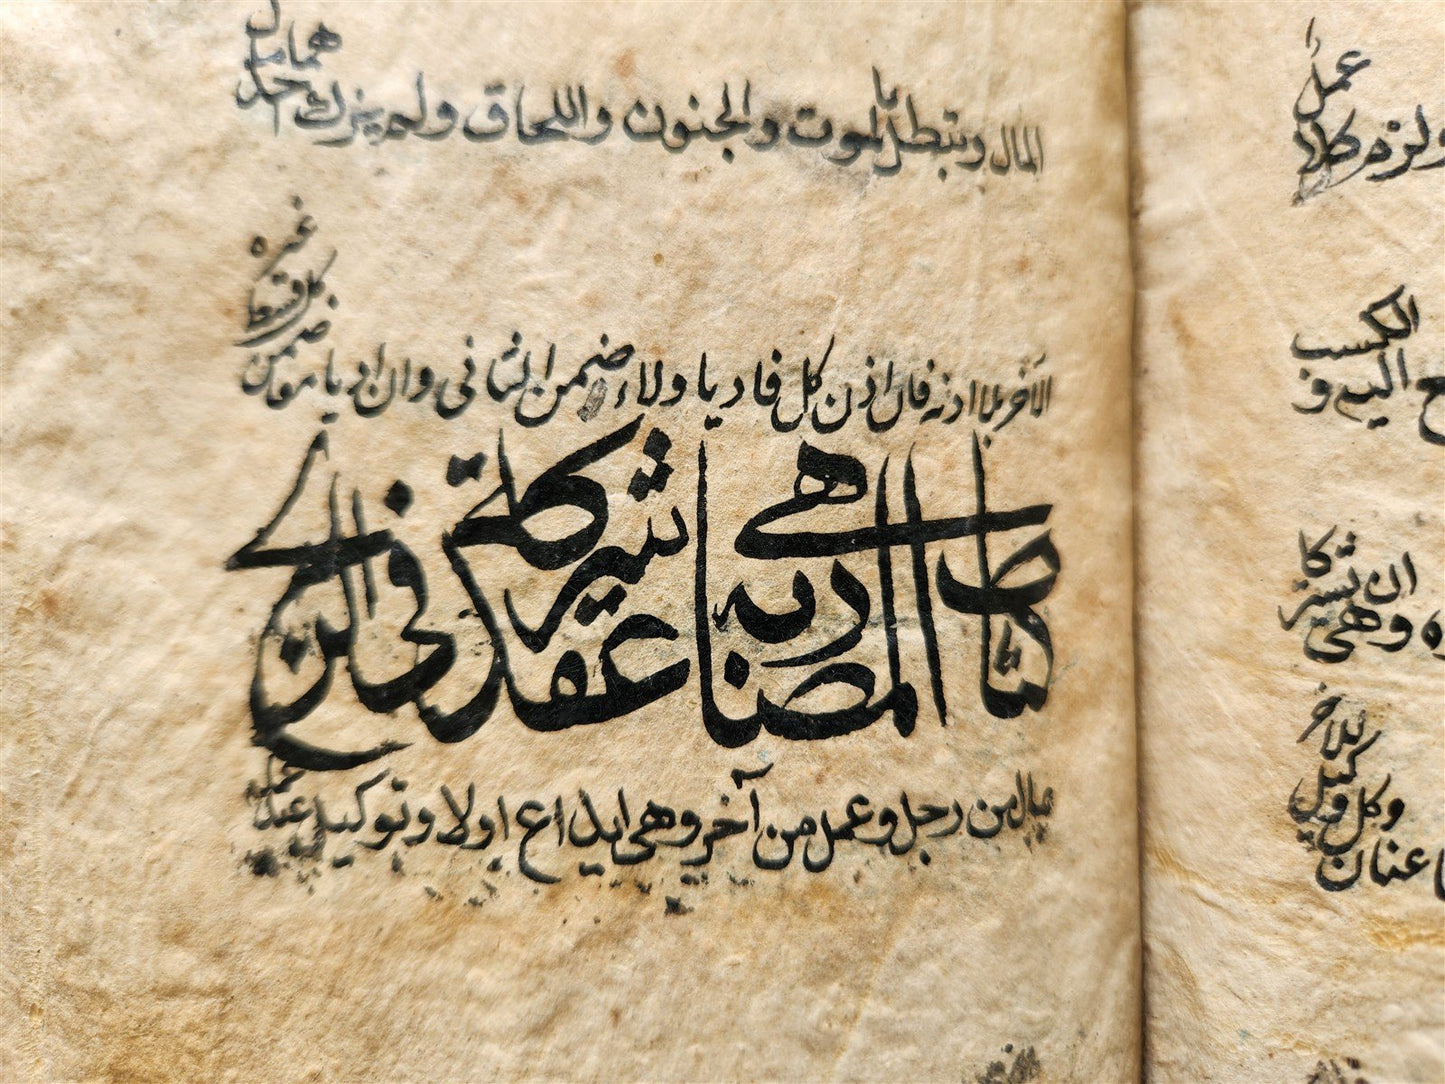 المال وتبطل بالموت والجنون واللحاق ولم يزك احدهما مال
الآخر بلا اذنه فان اذن كل فاديا ولاء ضمن الثاني وان اديا معا ضمن كل قسط غيره
كتاب المضاربة هي عقد شركة في الربح
بمال من رجل وعمل من آخر وهي ايداع اولا وتوكيل عند عمله
عملا
ولزم كلا
الكسب
اليه و
ان تشتركا
وهي
للآخر
وكيل
وكل
عنان